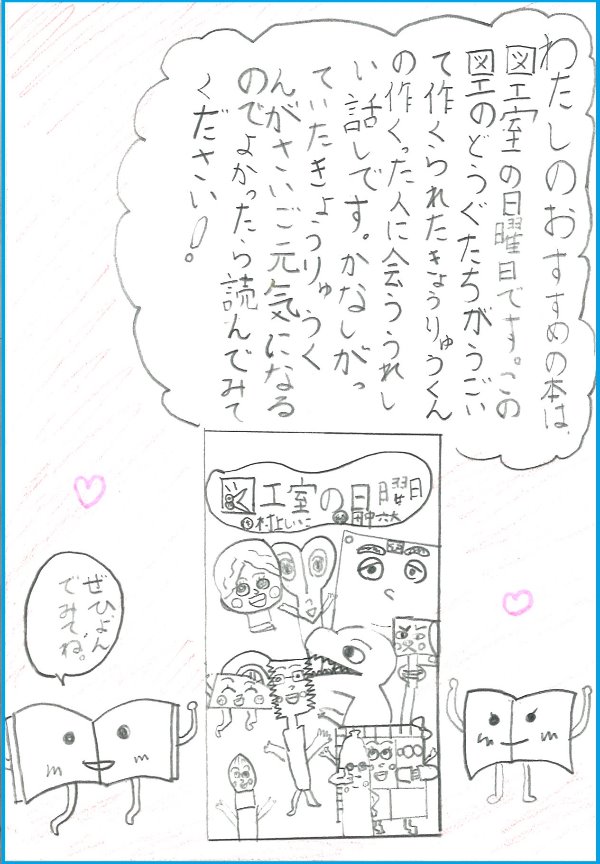 わたしのおすすめの本は、
図工室の日曜日です。この
図工のどうぐたちがうごい
て作くられたきょうりゅうくん
の作くった人に会ううれし
い話しです。かなしがっ
ていたきょうりゅうく
んがさいご元気になる
のでよかったら読んでみて
ください！。
図工室の日曜日
作村上しいこ 絵田中六大
ぜひよん
でみてね。